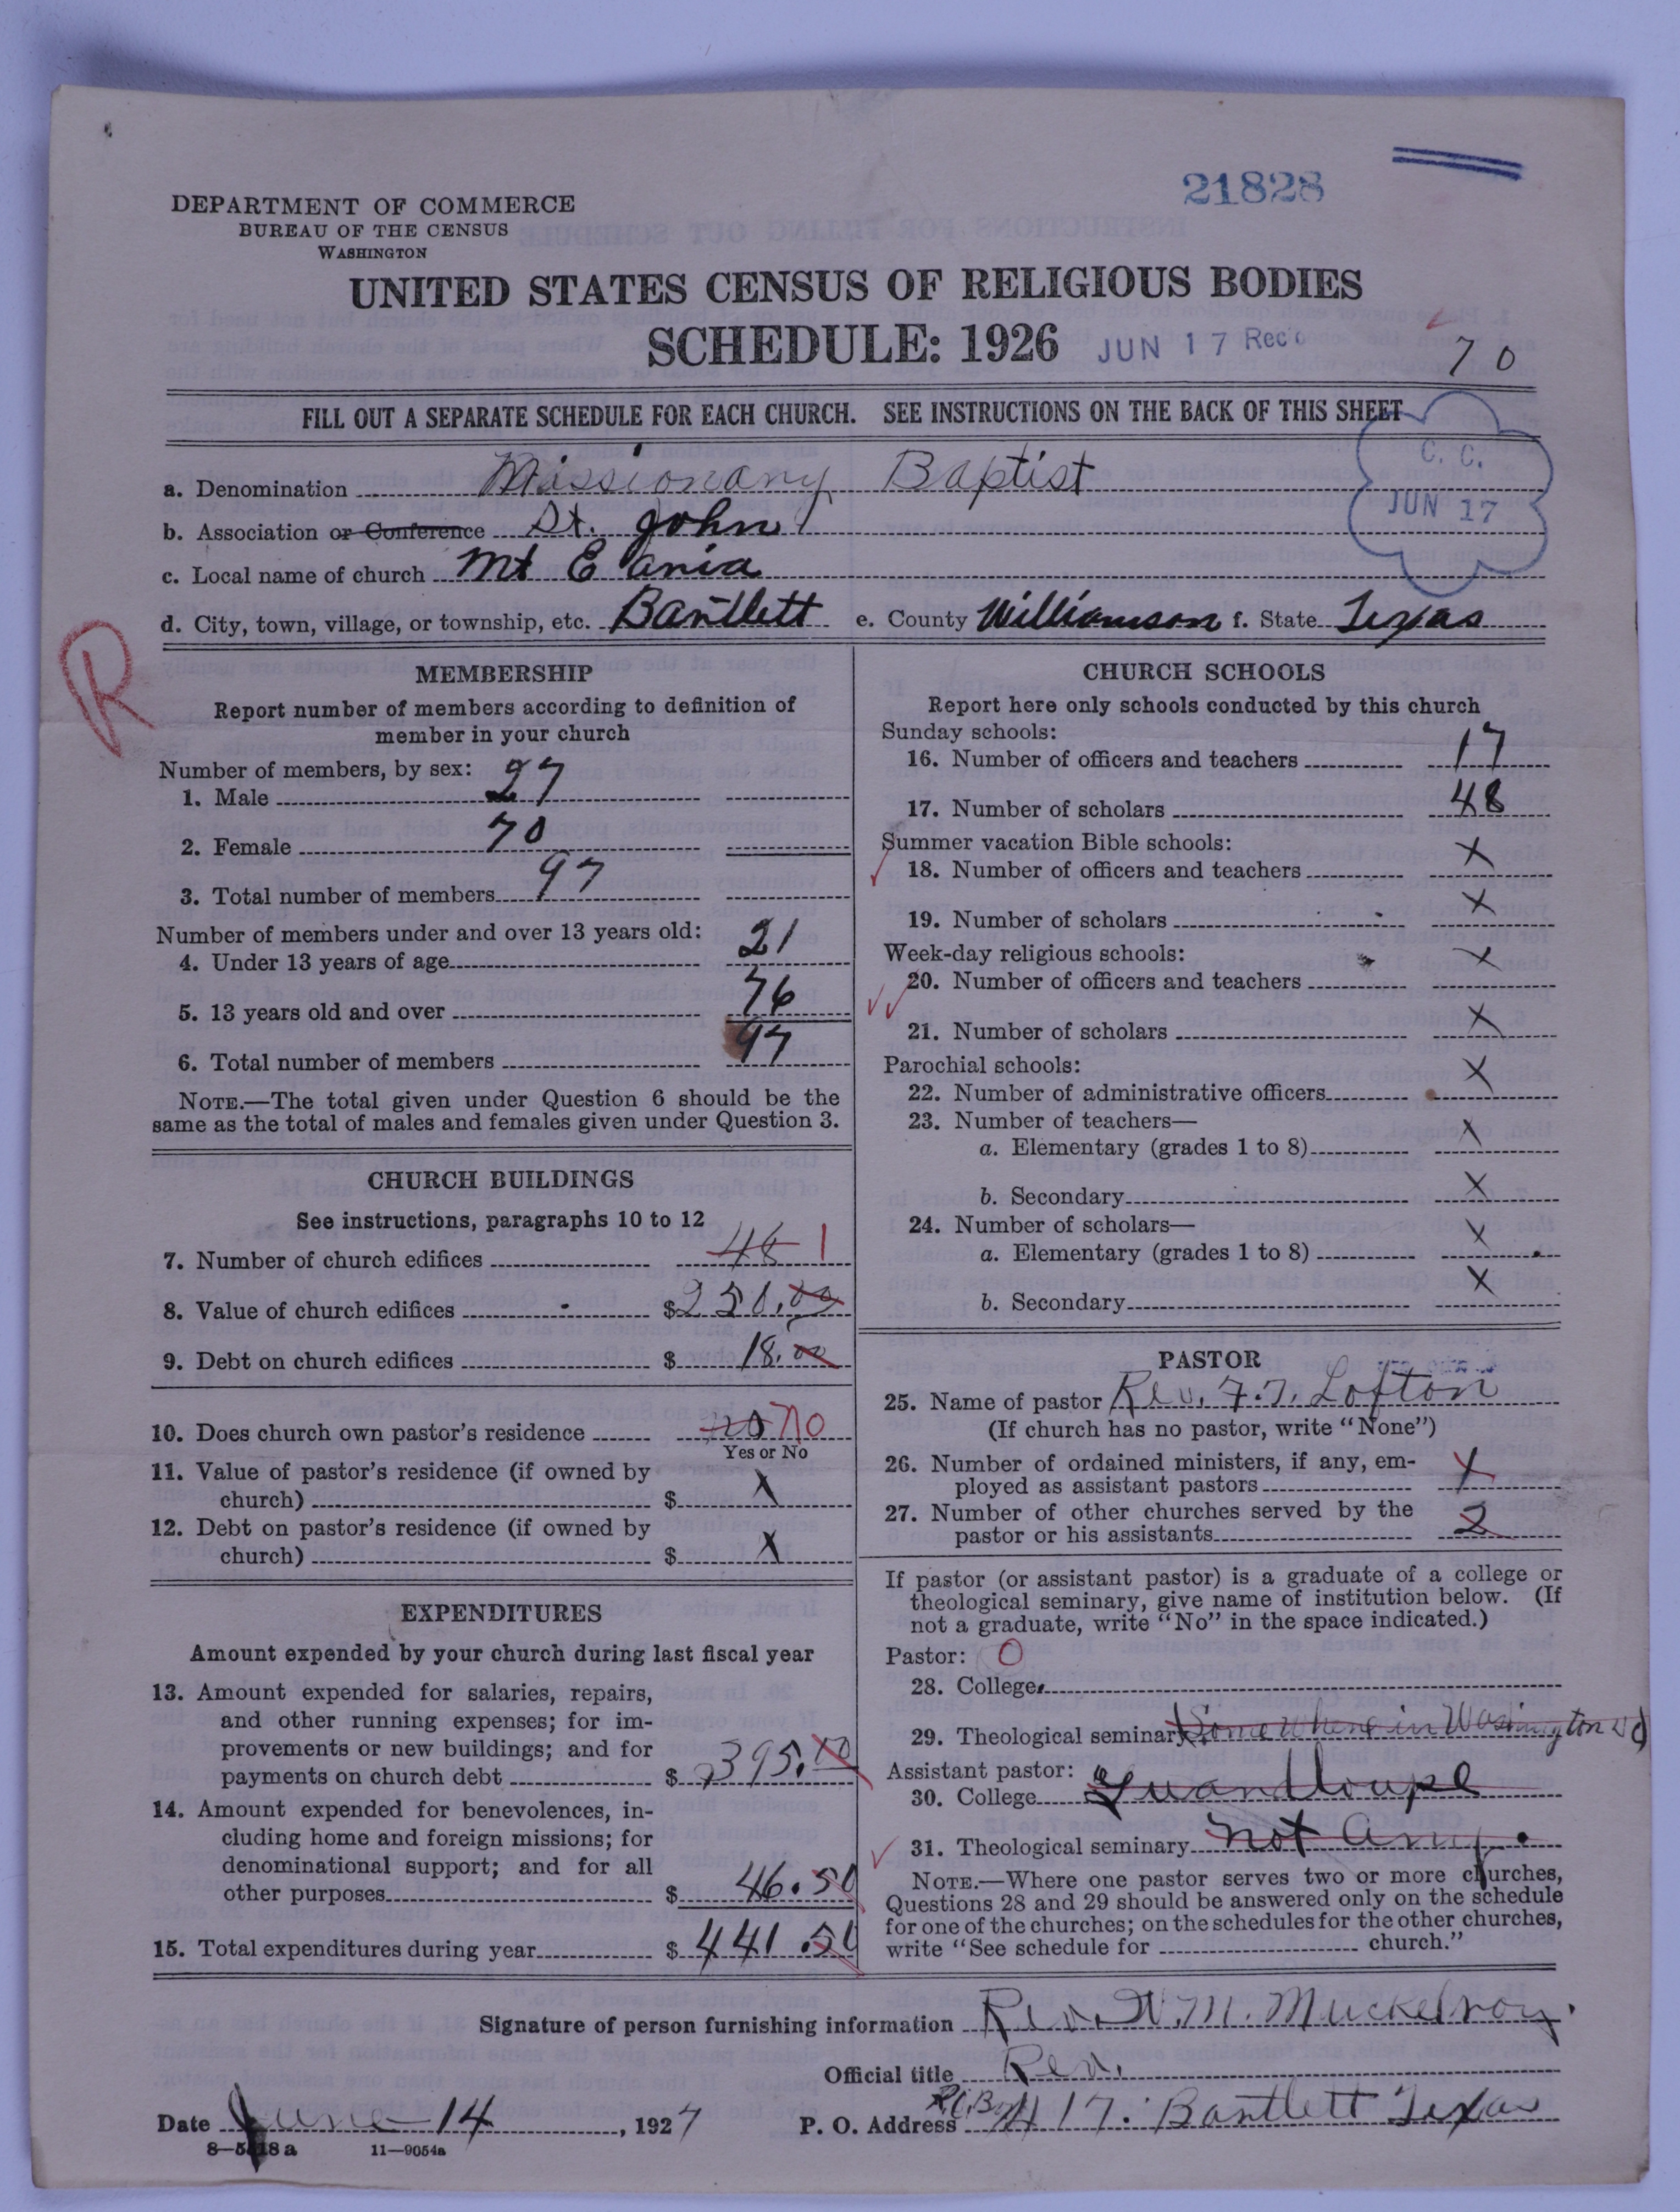 21828
DEPARTMENT OF COMMERCE
BUREAU OF THE CENSUS
WASHINGTON
UNITED STATES CENSUS OF RELIGIOUS BODIES
SCHEDULE: 1926 JUN 17 Rec'd
70
FILL OUT A SEPARATE SCHEDULE FOR EACH CHURCH. SEE INSTRUCTIONS ON THE BACK OF THIS SHEET
C. C.
JUN 17
a. Denomination Missionary Baptist
b. Association or Conference St. John
c. Local name of church Mt E ania
d. City, town, village, or township, etc. Bartlett e. County Williamson f. State Texas
R
MEMBERSHIP
Report number of members according to definition of
member in your church
Number of members, by sex:
1. Male 27
2. Female 70
3. Total number of members 97
Number of members under and over 13 years old:
4. Under 13 years of age 21
5. 13 years old and over 76
6. Total number of members 97
NOTE.—The total given under Question 6 should be the
same as the total of males and females given under Question 3.
CHURCH BUILDINGS
See instructions, paragraphs 10 to 12
7. Number of church edifices 48 1
8. Value of church edifices $250.00
9. Debt on church edifices $ 18.00
10. Does church own pastor's residence no No
Yes or No
11. Value of pastor's residence (if owned by
church) $ X
12. Debt on pastor's residence (if owned by
church) $ X
EXPENDITURES
Amount expended by your church during last fiscal year
13. Amount expended for salaries, repairs,
and other running expenses; for im-
provements or new buildings; and for
payments on church debt $ 395.10
14. Amount expended for benevolences, in-
cluding home and foreign missions; for
denominational support; and for all
other purposes $ 46.50
15. Total expenditures during year $ 441.50
CHURCH SCHOOLS
Report here only schools conducted by this church
Sunday schools:
16. Number of officers and teachers 17
17. Number of scholars 48
Summer vacation Bible schools:
18. Number of officers and teachers X
19. Number of scholars X
Week-day religious schools:
20. Number of officers and teachers X
21. Number of scholars X
Parochial schools:
22. Number of administrative officers X
23. Number of teachers—
a. Elementary (grades 1 to 8) X
b. Secondary X
24. Number of scholars—
a. Elementary (grades 1 to 8) X
b. Secondary X
PASTOR
25. Name of pastor Rev. F. T. Lofton
(If church has no pastor, write "None")
26. Number of ordained ministers, if any, em-
ployed as assistant pastors X
27. Number of other churches served by the
pastor or his assistants 2
If pastor (or assistant pastor) is a graduate of a college or
theological seminary, give name of institution below. (If
not a graduate, write "No" in the space indicated.)
Pastor: O
28. College
29. Theological seminary Some Where in Washington
Assistant pastor:
30. College Guandloupe
31. Theological seminary not Any.
NOTE.—Where one pastor serves two or more churches,
Questions 28 and 29 should be answered only on the schedule
for one of the churches; on the schedules for the other churches,
write "See schedule for church."
Signature of person furnishing information Rev. W. M. Muckelroy.
Official title Rev.
Date June 14, 1927 P. O. Address P.O. Box 417. Bartlett Texas
8—5418 a 11—9054a